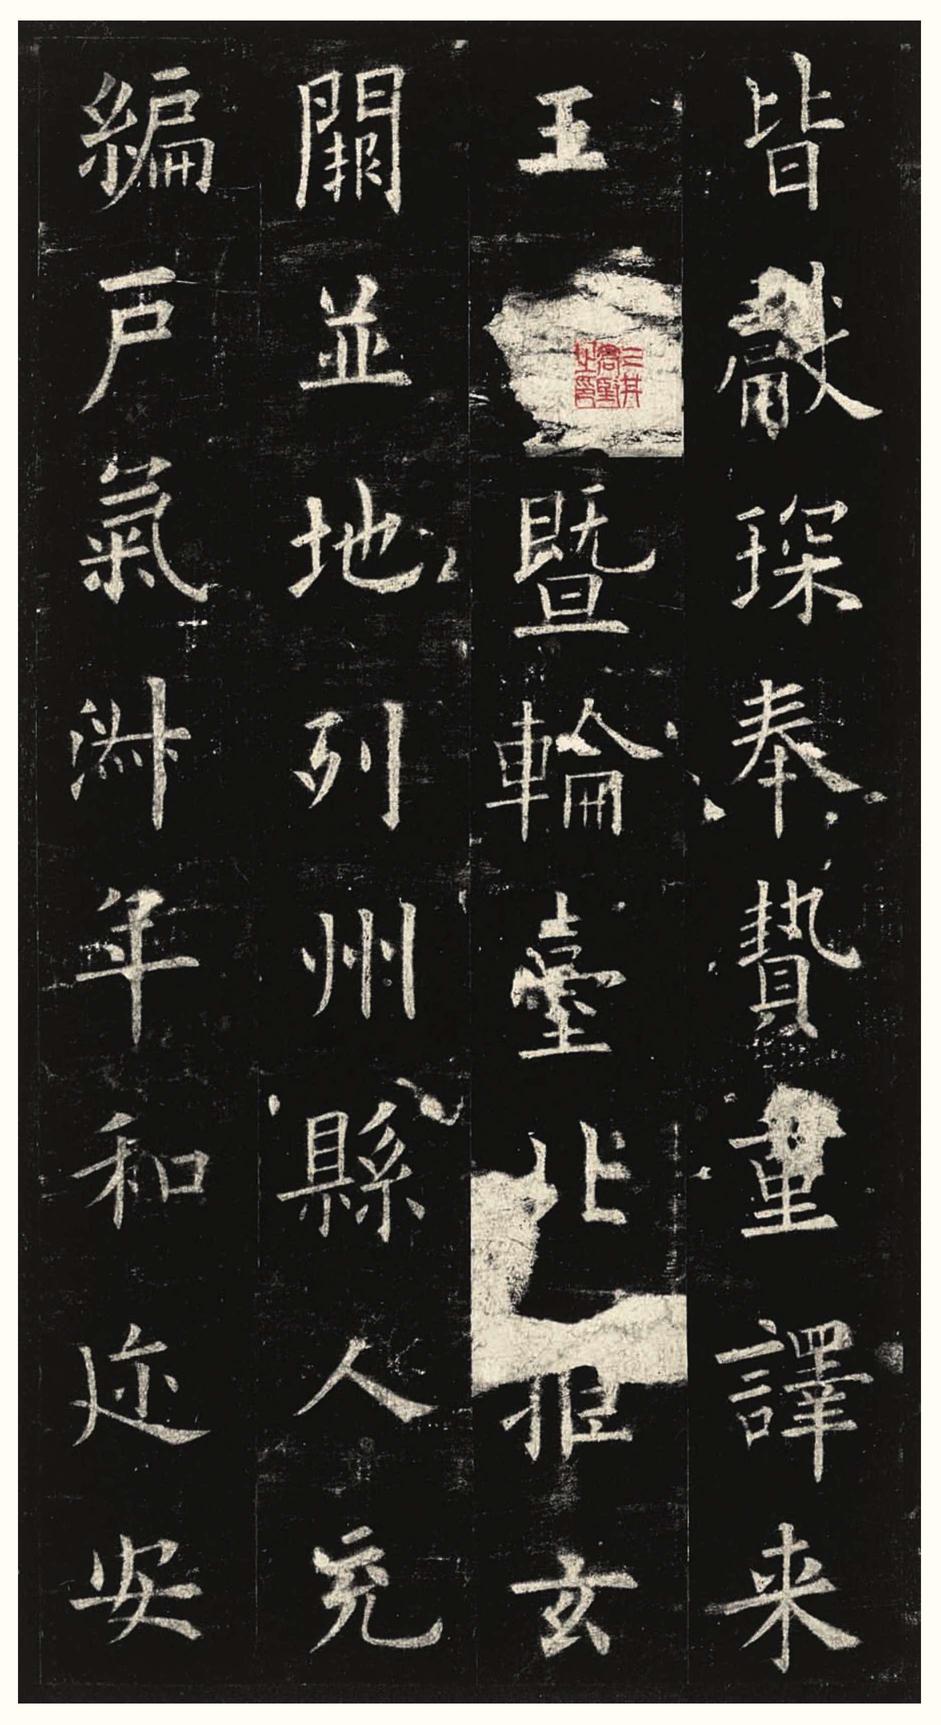 皆獻琛奉贄重譯来
王暨輪臺北拒玄
闕並地列州縣人充
編戶氣淑年和迩安
三井高堅之印